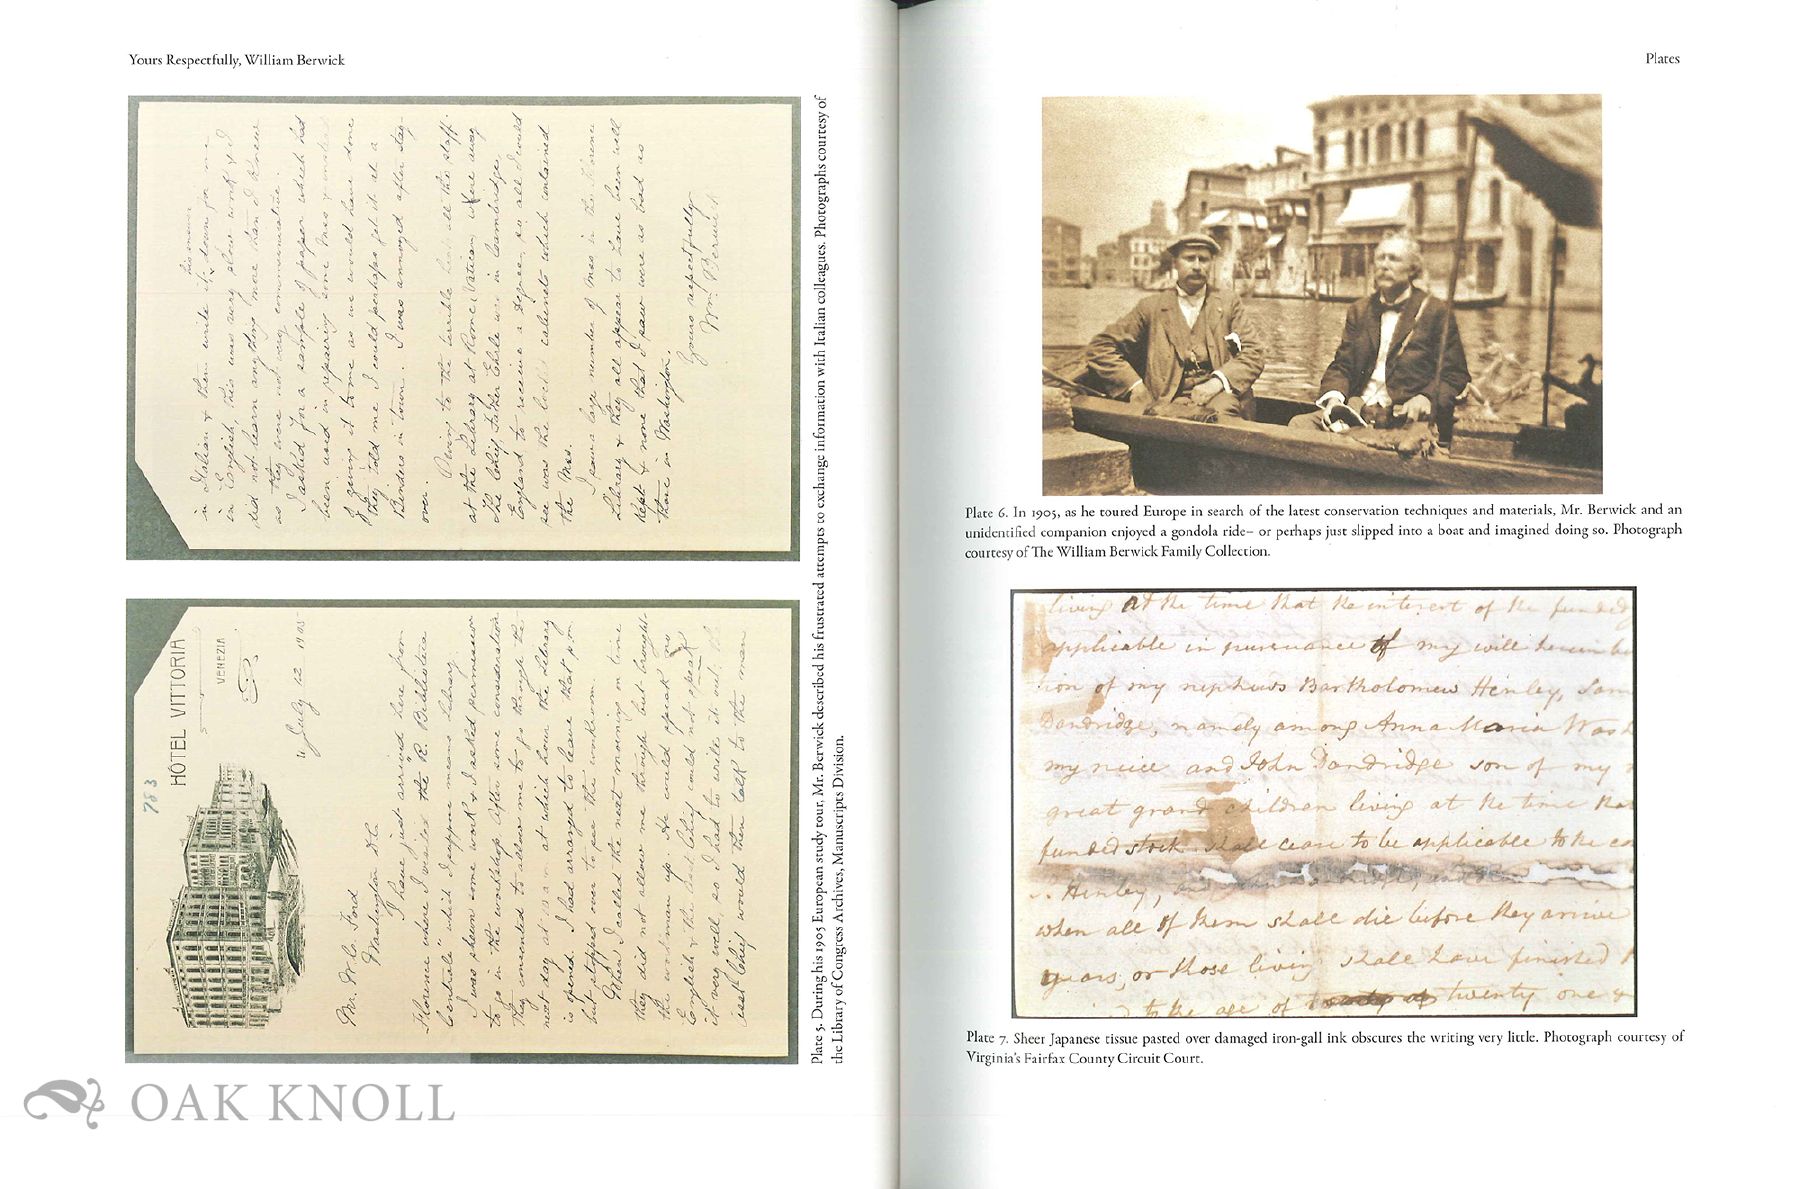 Yours Respectfully, William Berwick
in Italian & then write it down for me
his answer
in English, this was very slow work & I
did not learn anything more than I knew
as they were not very communicative.
I asked for a sample of paper which had
been used in repairing some Mss &
of giving it to me as we would have done
they told me I could perhaps get it at a
Binders in town. I was amazed after
over.
Owing to the terrible heat all the staff
at the Library at Rome (Vatican) were away
The Chief Father Ehrle was in Cambridge
England to receive a degree, so all I could
see was the cabinets which contained
the Mss.
I saw a large number of Mss in the Florence
Library & they all appear to have been well
kept & none that I saw were as bad as
those in Washington.
Yours respectfully
Wm. Berwick
783
HÔTEL VITTORIA
VENEZIA
July 12 1905
Mr. W. C. Ford
Washington D.C.
I have just arrived here from
Florence where I visited the R. Biblioteca
Centrale" which I suppose means library.
I was shown some work & I asked permission
to go in the workshop. After some consideration
they consented to allow me to go through the
next day at at which hour the Library
is opened. I had arranged to leave that p.m
but stopped over to see the workroom.
When I called the next morning on time
they did not allow me through but brought
the workman up. He could speak no
English & the asst Chief could not speak
it very well, so I had to write it out the
asst Chief would then talk to the man
Plate 5. During his 1905 European study tour, Mr. Berwick described his frustrated attempts to exchange information with Italian colleagues. Photographs courtesy of
the Library of Congress Archives, Manuscripts Division.
OAK KNOLL
Plates
Plate 6. In 1905, as he toured Europe in search of the latest conservation techniques and materials, Mr. Berwick and an
unidentified companion enjoyed a gondola ride– or perhaps just slipped into a boat and imagined doing so. Photograph
courtesy of The William Berwick Family Collection.
living at the time that the interest of the funded
applicable in pursuance of my will herein
tion of my nephews Bartholomew Henley, Sam
Dandridge, namely among Anna Maria Wash
my niece and John Dandridge son of my
great grand children living at the time that
funded stock shall cease to be applicable to the
Henley,
when all of them shall die before they arrive
years, or those living shall have finished
to the age of twenty one
Plate 7. Sheer Japanese tissue pasted over damaged iron-gall ink obscures the writing very little. Photograph courtesy of
Virginia's Fairfax County Circuit Court.